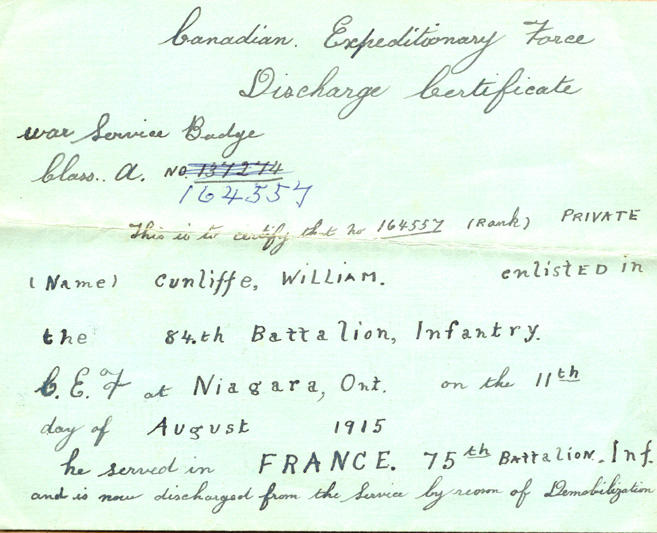 Canadian. Expeditionary Force
Discharge Certificate
war Service Badge
Class.. A. NO. 137274
164557
This is to certify that no 164557 (Rank) PRIVATE
(Name) Cunliffe, WILLIAM. enlisTED in
the 84.th Battalion, Infantry.
C.E.F at Niagara, Ont. on the 11th
day of August 1915
he served in FRANCE. 75th BATTALION. Inf.
and is now discharged from the Service by reason of Demobilization